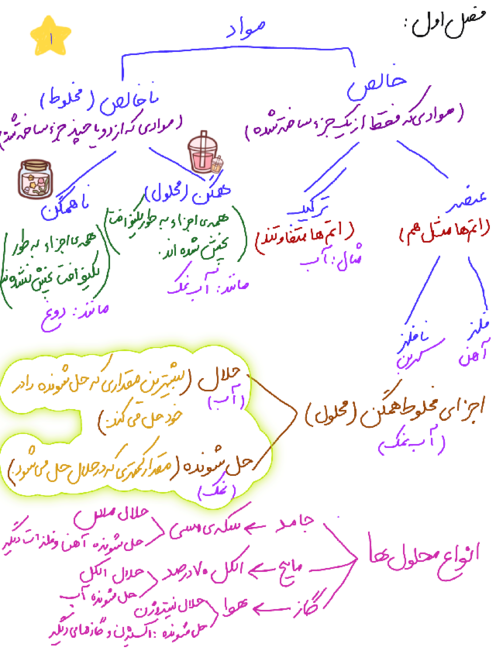 فصل اول:
۱
مواد
خالص
(موادی که فقط از یک جزء ساخته شده)
ناخالص (مخلوط)
(موادی که از دو یا چند جزء ساخته شده)
عنصر
(اتم‌ها مثل هم)
فلز
آهن
نافلز
ترکیب
(اتم‌ها متفاوتند)
مثال: آب
همگن (محلول)
همه‌ی اجزاء به طور یکنواخت
پخش شده اند.
مانند: آب نمک
ناهمگن
همه‌ی اجزاء به طور
یکنواخت پخش نشده‌اند
مانند: دوغ
اجزای مخلوط همگن (محلول)
(آب نمک)
حلال (بیشترین مقداری که حل شونده را در
خود حل می‌کند:)
(آب)
حل شونده (مقدار کمتری که در حلال حل می‌شود:)
(نمک)
انواع محلول‌ها
جامد ← سکه‌ی مسی
حلال مس
حل شونده آهن و فلزات دیگر
مایع ← الکل ۷۰ درصد
حلال الکل
حل شونده آب
گاز ← هوا
حلال نیتروژن
حل شونده: اکسیژن و گازهای دیگر